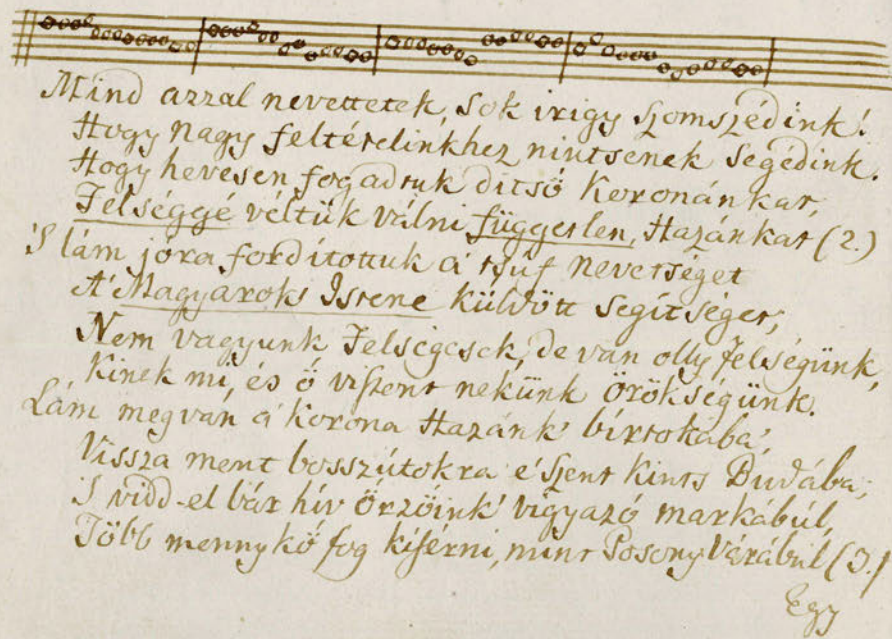 Mind azzal nevettetek, Sok irigy Szomszédink!
Hogy nagy feltételinkhez nintsenek Segédink.
Hogy hevesen fogadtuk ditső Koronánkat,
Felséggé véltük válni független, Hazánkat (2.)
'S lám jóra fordítottuk a' tsúf nevetséget
A' Magyarok' Istene küldött Segítséget,
Nem vagyunk Felségesek, de van olly Felségünk,
Kinek mi, és ő viszont nékünk örökségünk.
Lám megvan a' Korona Hazánk' birtokába',
Vissza ment bosszútokra e' Szent Kints Budába,
'S vidd-el bár hív Őrzőink' vigyazó markábúl,
Több mennykő fog kisérni, mint Posony Várábúl (3.)
Egy